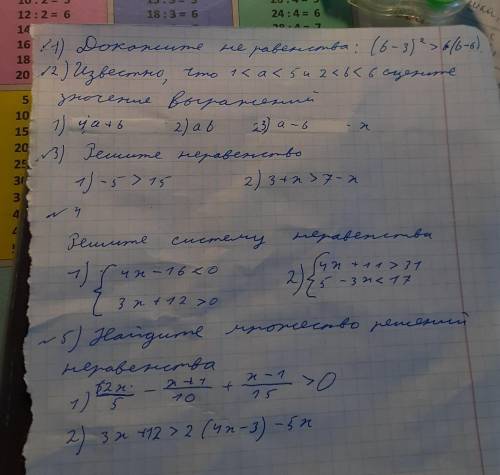 10 : 2 = 5
12 : 2 = 6
15 : 3 = 5
18 : 3 = 6
24 : 4 = 6
№1) Докажите неравенства: (b-3)² > b(b-6)
№2) Известно, что 1 < a < 5 и 2 < b < 6 оцените
значение выражений
1) 4a+b 2) ab 3) a-b - x
№3) Решите неравенство
1) -5 > 15 2) 3+x > 7-x
№ 4
Решите систему неравенства
1) { 4x - 16 < 0 2) { 4x + 11 > 31
3x + 12 > 0 5 - 3x < 17
№5) Найдите множество решений
неравенства
1) 2x/5 - x+1/10 + x-1/15 > 0
2) 3x+12 > 2(4x-3) - 5x